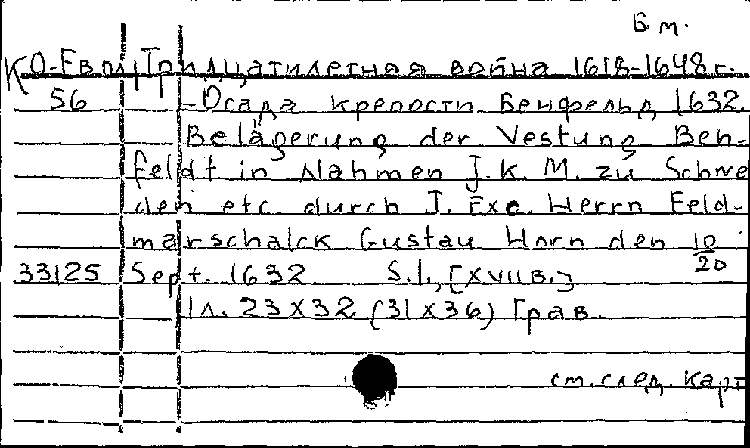 Б м.
КО-Евр. Тридцатилетняя война 1618-1648 г.
56 -Осада крепости Бенфельд 1632.
Belägerung der Vestung Ben-
feldt in Nahmen J. K. M. zu Schwe
den etc. durch J. Exc. Herrn Feld-
marschalck Gustav Horn den 10/20
33125 Sept. 1632 S.l., [XVII в.]
1 л. 23 x 32 (31 x 36) Грав.
см. след. карт